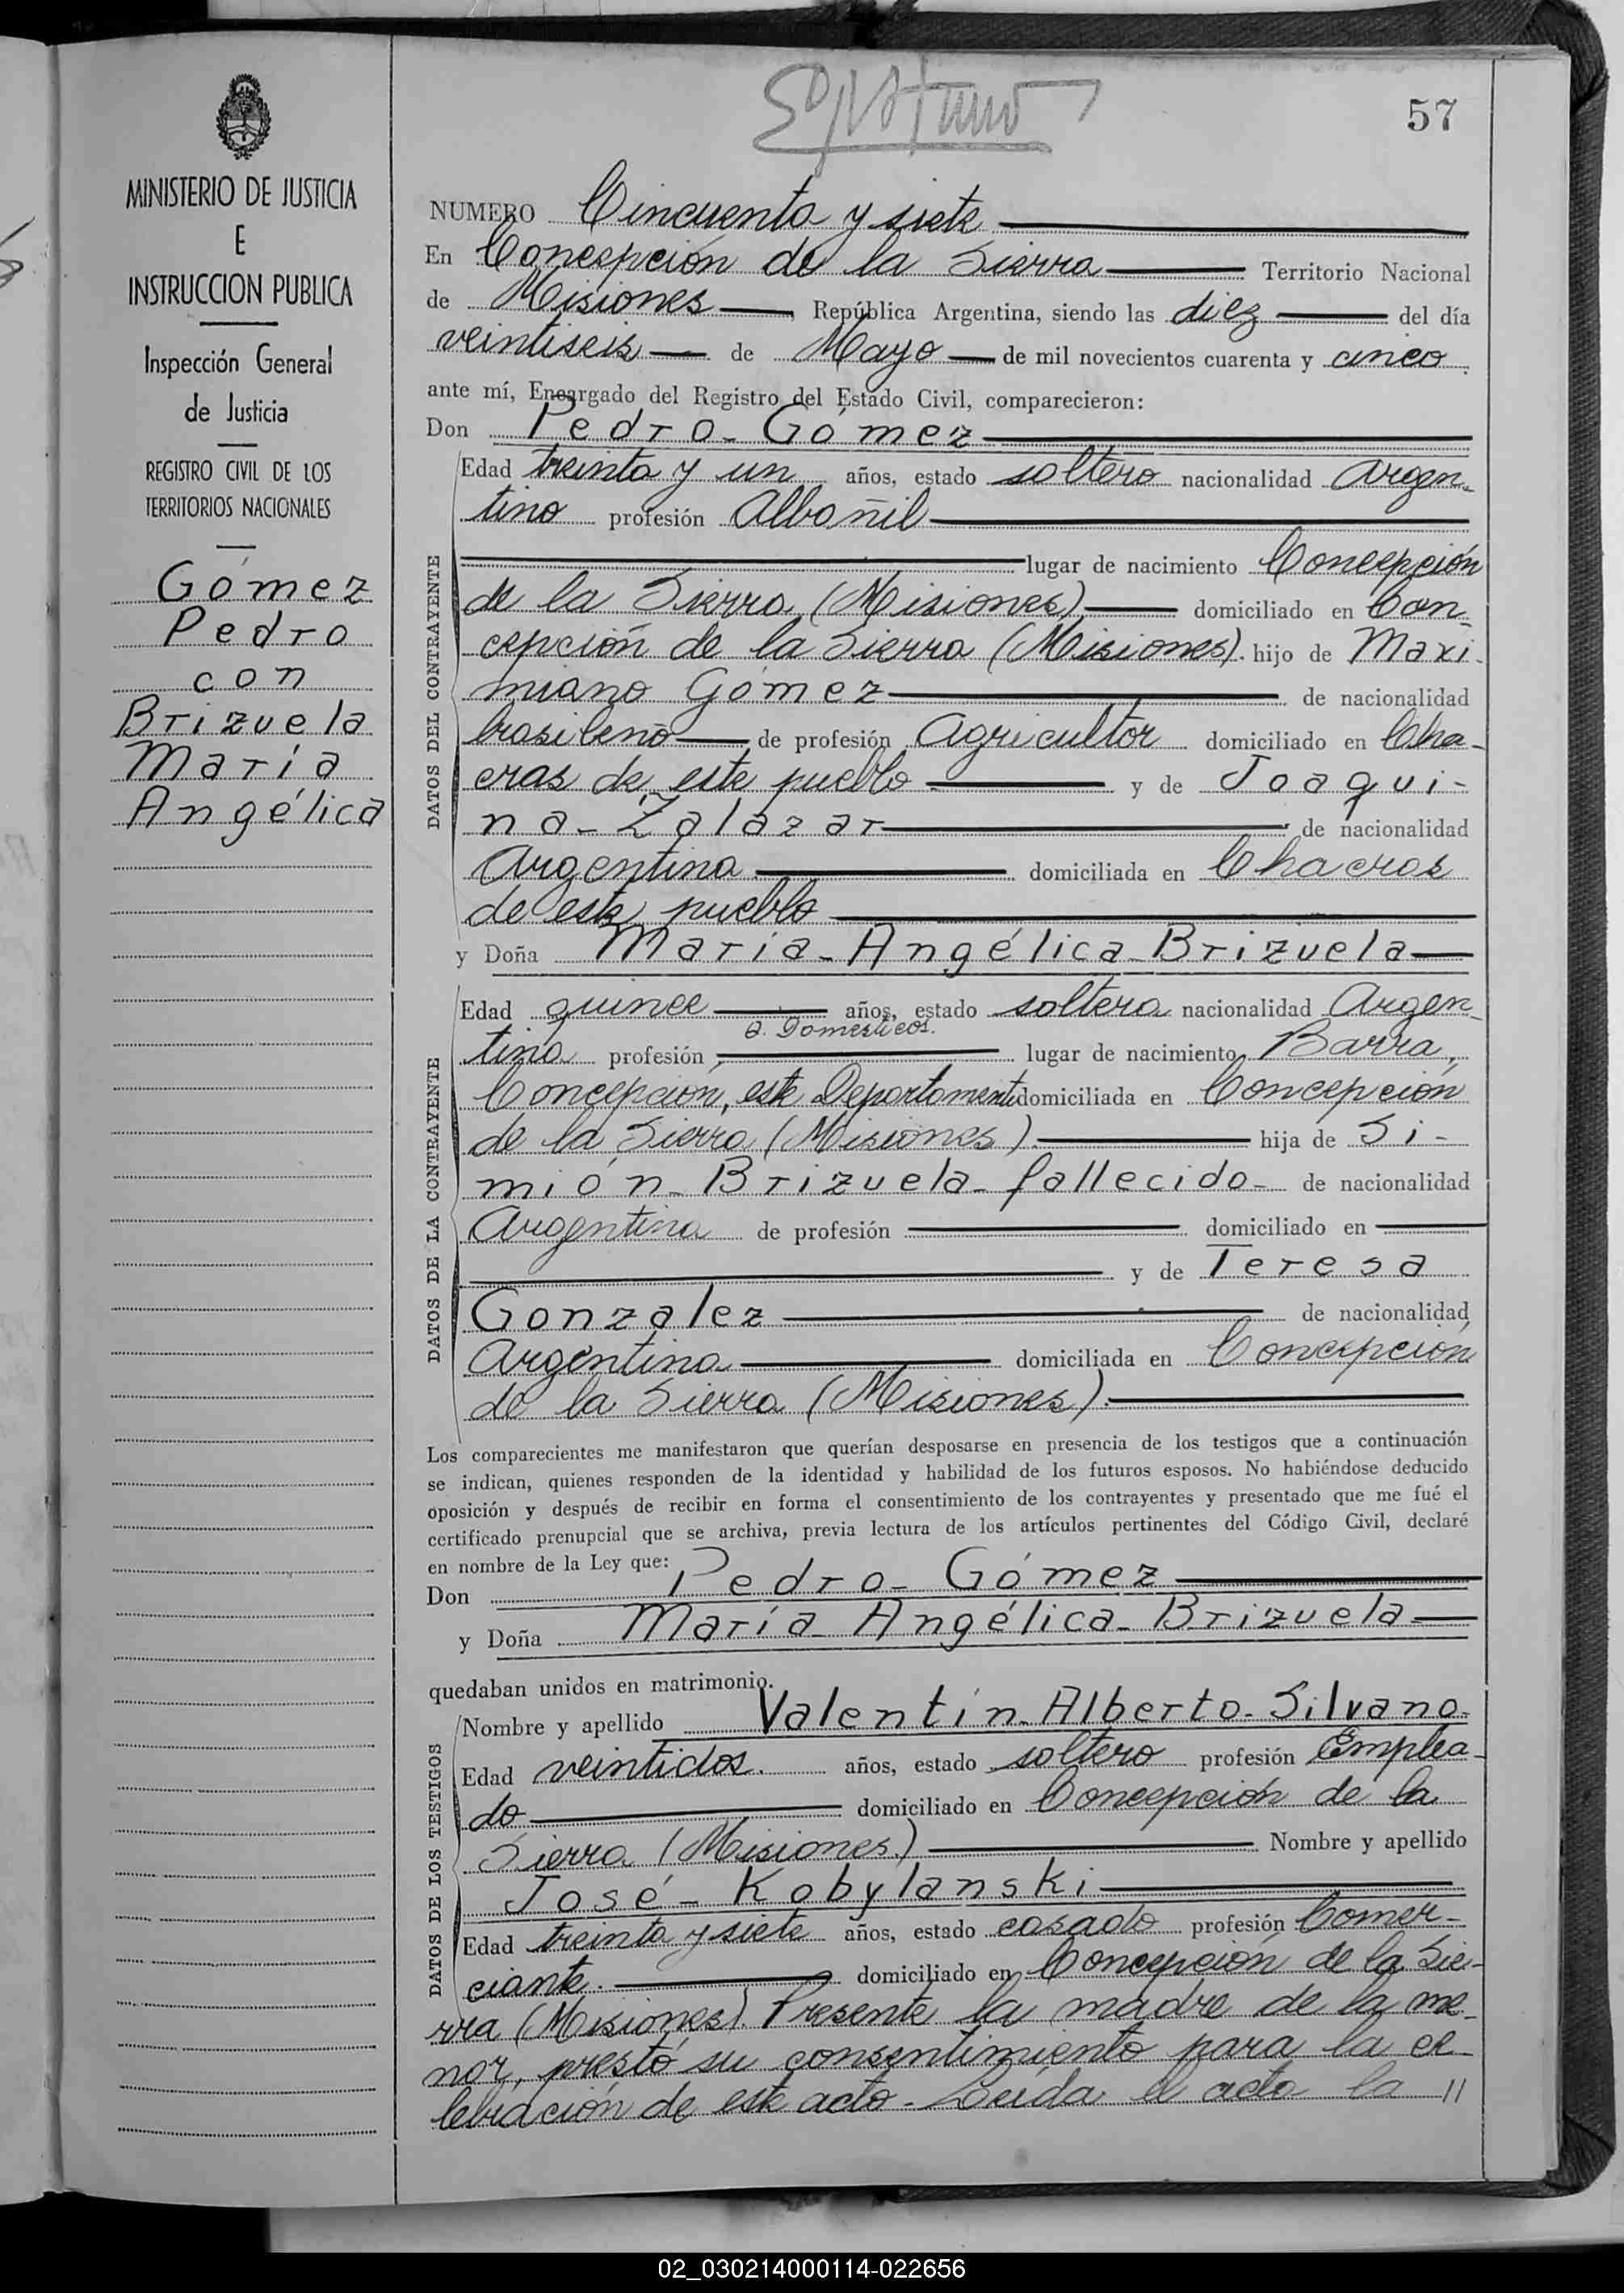 57
MINISTERIO DE JUSTICIA
E
INSTRUCCION PUBLICA
Inspección General
de Justicia
REGISTRO CIVIL DE LOS
TERRITORIOS NACIONALES
Gómez
Pedro
con
Brizuela
María
Angélica
NUMERO Cincuenta y siete
En Concepción de la Sierra Territorio Nacional
de Misiones, República Argentina, siendo las diez del día
veintiseis de Mayo de mil novecientos cuarenta y cinco
ante mí, Encargado del Registro del Estado Civil, comparecieron:
Don Pedro-Gómez
DATOS DEL CONTRAYENTE
Edad treinta y un años, estado soltero nacionalidad Argen-
tino profesión Albañil
lugar de nacimiento Concepción
de la Sierra (Misiones) domiciliado en Con-
cepción de la Sierra (Misiones). hijo de Maxi-
miano Gómez de nacionalidad
brasileño de profesión Agricultor domiciliado en Cha-
cras de este pueblo y de Joaqui-
na-Zalazar de nacionalidad
Argentina domiciliada en Chacras
de este pueblo
y Doña María-Angélica-Brizuela
DATOS DE LA CONTRAYENTE
Edad quince años, estado soltera nacionalidad Argen-
q. Domésticos.
tina profesión lugar de nacimiento Barra,
Concepción, este Departamento domiciliada en Concepción
de la Sierra (Misiones). hija de Si-
mión-Brizuela-fallecido- de nacionalidad
Argentina de profesión domiciliado en
y de Teresa
Gonzalez de nacionalidad
Argentina domiciliada en Concepción
de la Sierra (Misiones).
Los comparecientes me manifestaron que querían desposarse en presencia de los testigos que a continuación
se indican, quienes responden de la identidad y habilidad de los futuros esposos. No habiéndose deducido
oposición y después de recibir en forma el consentimiento de los contrayentes y presentado que me fué el
certificado prenupcial que se archiva, previa lectura de los artículos pertinentes del Código Civil, declaré
en nombre de la Ley que:
Don Pedro-Gómez
y Doña María-Angélica-Brizuela
quedaban unidos en matrimonio.
DATOS DE LOS TESTIGOS
Nombre y apellido Valentín-Alberto-Silvano-
Edad veintidos. años, estado soltero profesión Emplea-
do domiciliado en Concepción de la
Sierra (Misiones) Nombre y apellido
José-Kobylanski
Edad treinta y siete años, estado casado profesión Comer-
ciante. domiciliado en Concepción de la Sie-
rra (Misiones). Presente la madre de la me-
nor, prestó su consentimiento para la ce-
lebración de este acto.-Leída el acta la //
02_030214000114-022656